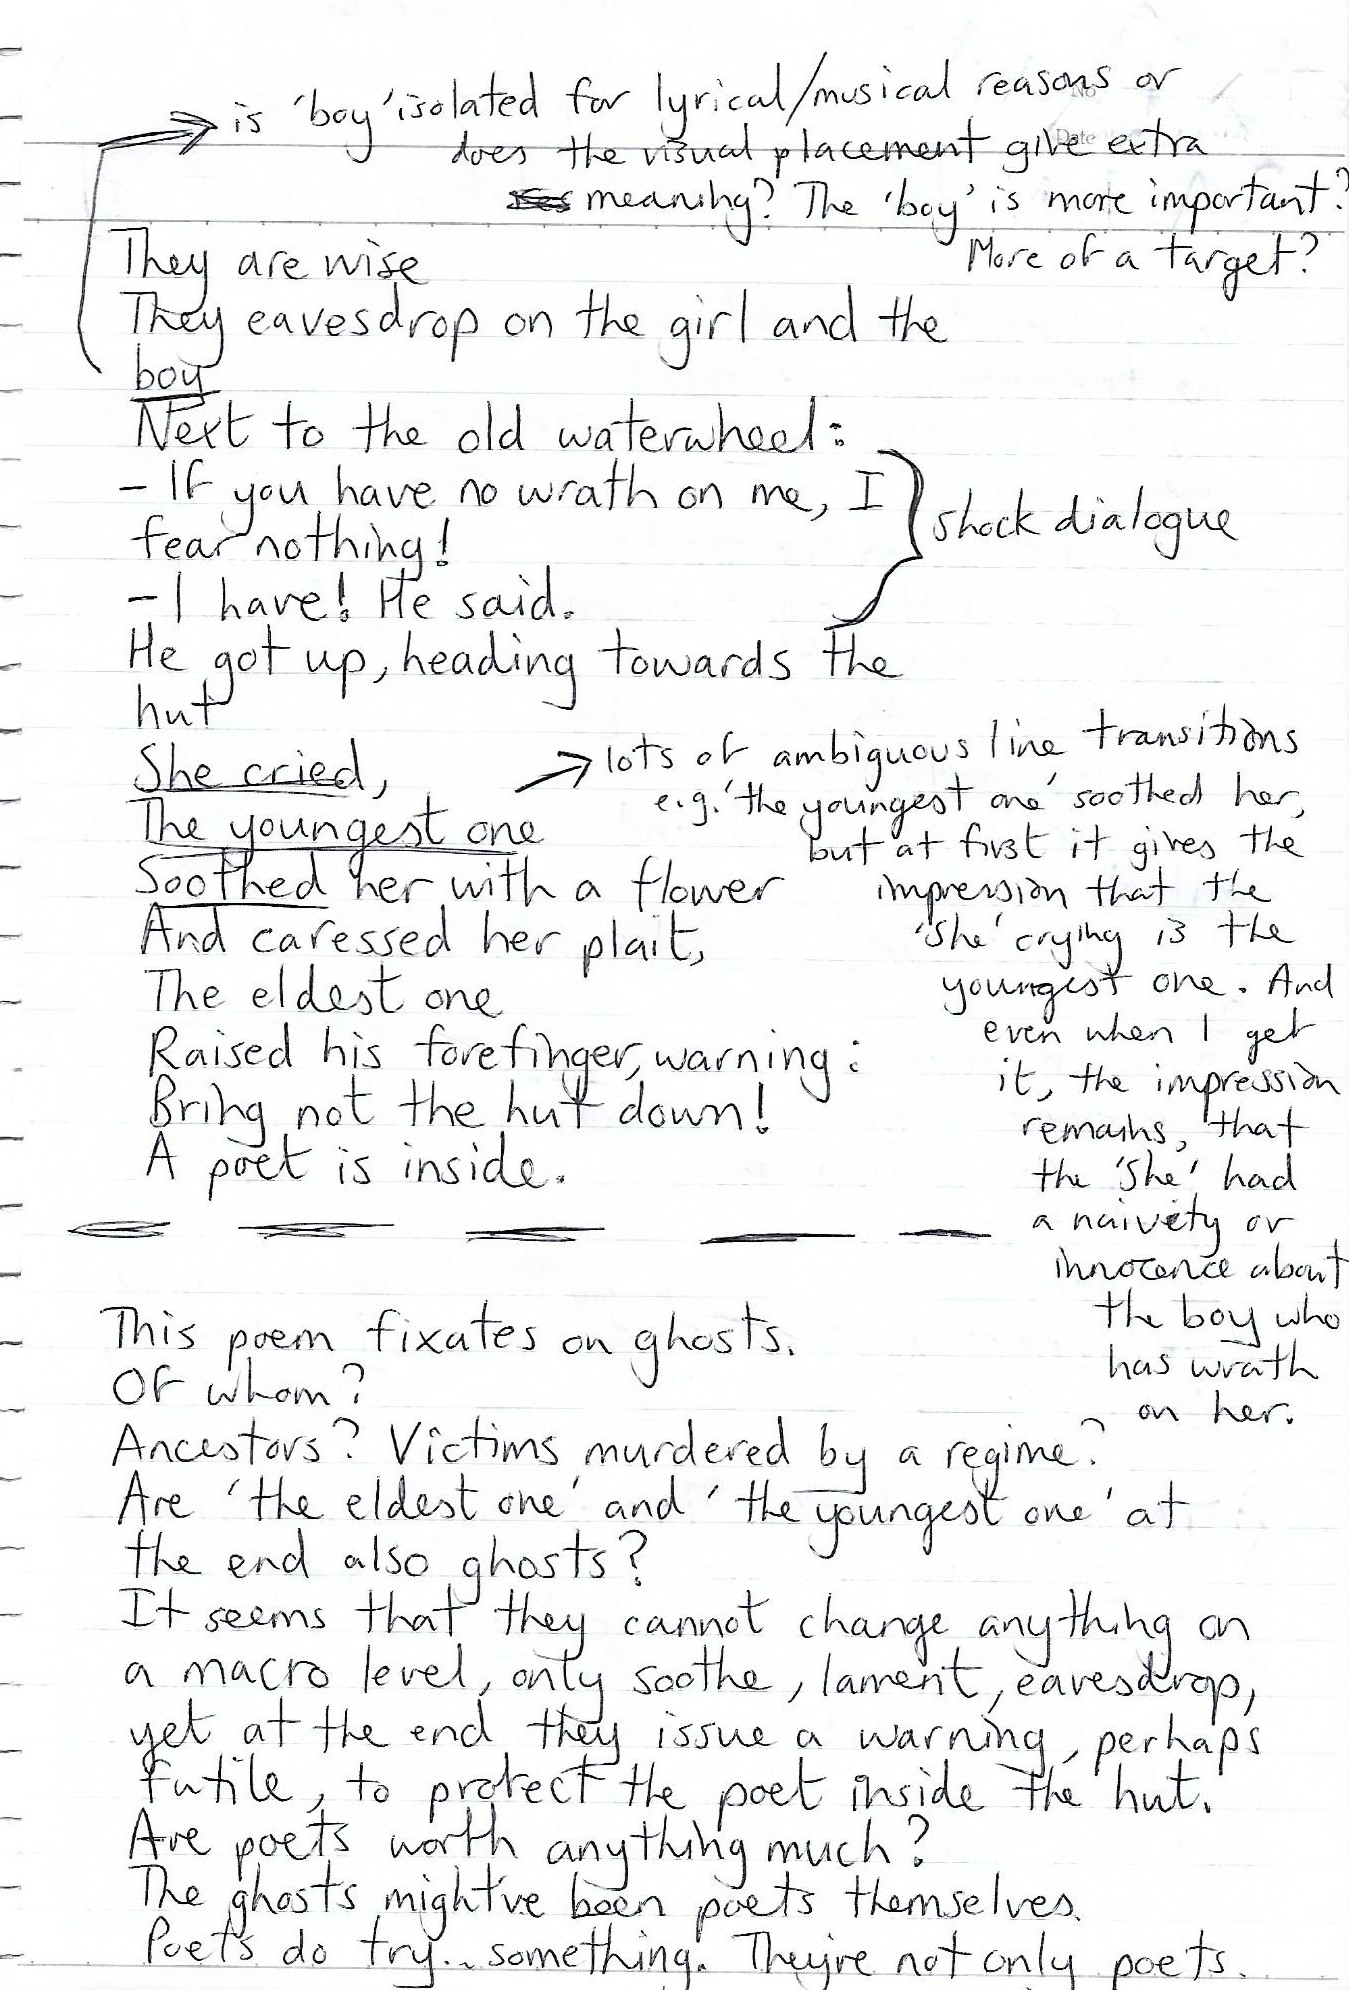 is 'boy' isolated for lyrical/musical reasons or
does the visual placement give extra
meaning? The 'boy' is more important?
More of a target?
They are wise
They eavesdrop on the girl and the
boy
Next to the old waterwheel:
- If you have no wrath on me, I
fear nothing!
- I have! He said.
shock dialogue
He got up, heading towards the
hut
She cried,
The youngest one
Soothed her with a flower
And caressed her plait,
The eldest one
Raised his forefinger, warning:
Bring not the hut down!
A poet is inside.
lots of ambiguous line transitions
e.g. 'the youngest one' soothed her,
but at first it gives the
impression that the
'she' crying is the
youngest one. And
even when I get
it, the impression
remains, that
the 'She' had
a naivety or
innocence about
the boy who
has wrath
on her.
This poem fixates on ghosts.
Of whom?
Ancestors? Victims murdered by a regime?
Are 'the eldest one' and 'the youngest one' at
the end also ghosts?
It seems that they cannot change anything on
a macro level, only soothe, lament, eavesdrop,
yet at the end they issue a warning, perhaps
futile, to protect the poet inside the hut.
Are poets worth anything much?
The ghosts might've been poets themselves.
Poets do try... something. They're not only poets.